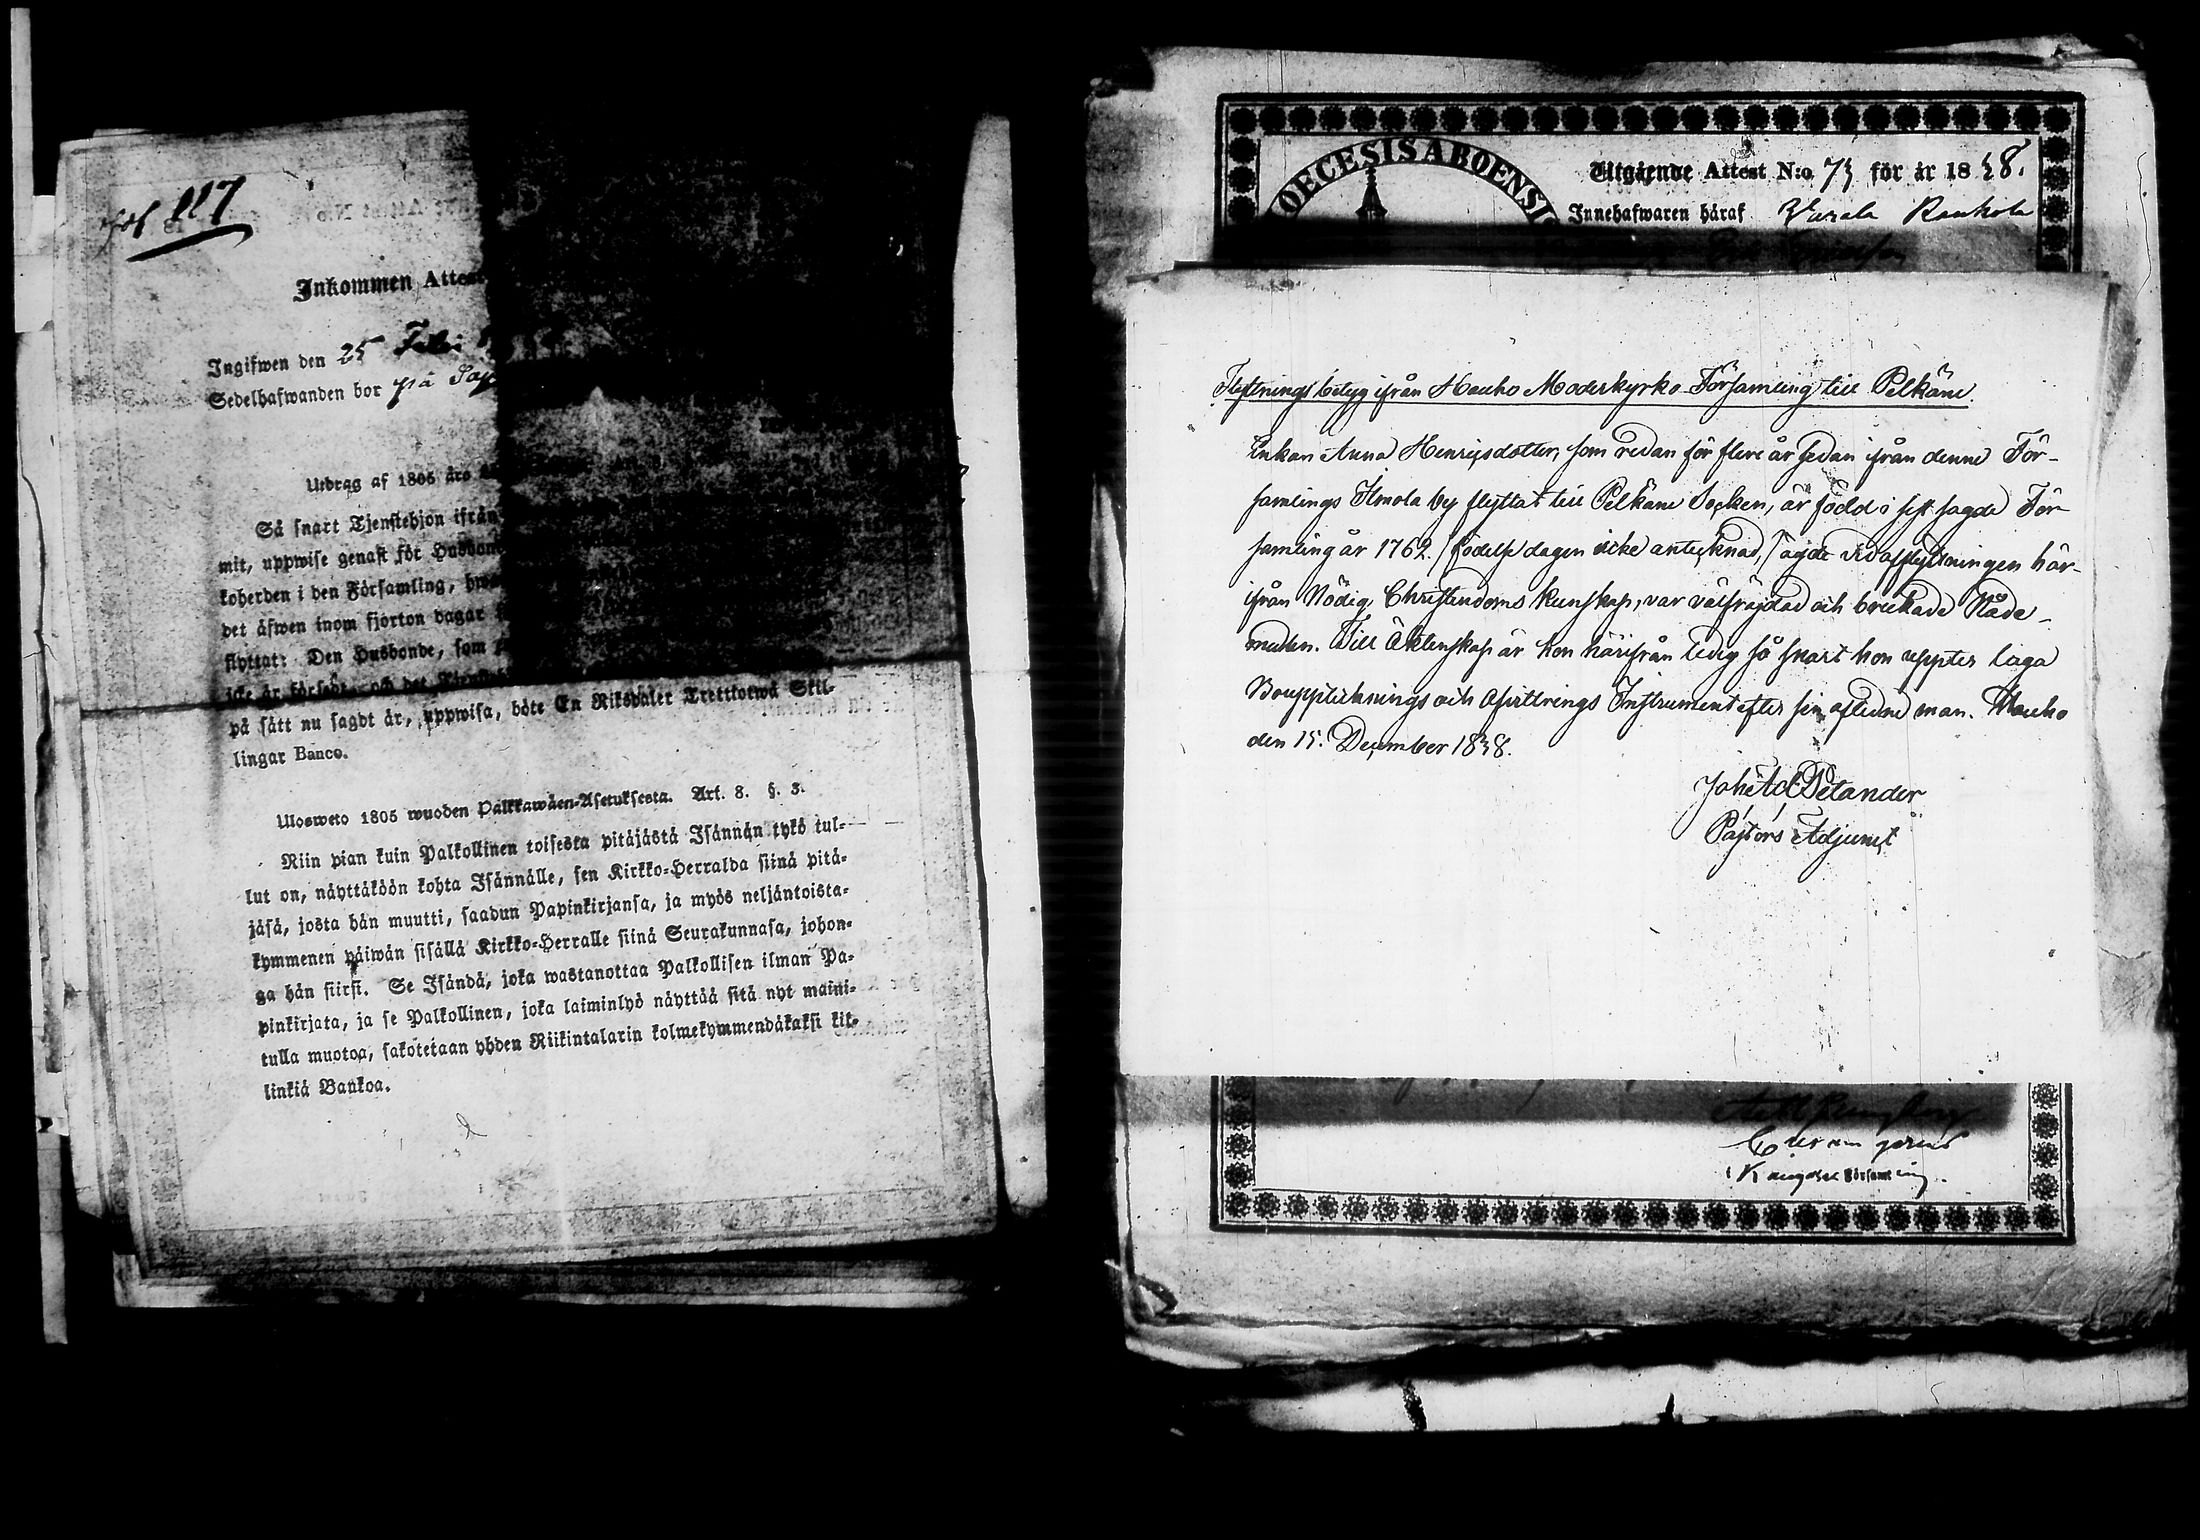 117
Inkommen Attest
Ingifwen den 25 Febr
Sedelhafwanden bor på
Utdrag af 1805 års
Så snart Tjenstehjon ifrån
mit, uppwise genast för Husbond
koherden i den Församling, hwa
det äfwen inom fjorton dagar
flyttat: Den Husbonde, som
icke är försedt, och det
på sätt nu sagdt är, uppwisa, böte En Riksdaler Trettiotwå Skil-
lingar Banco.
Ulosweto 1805 wuoden Palkkawäen-Asetuksesta. Art. 8. §. 3.
Niin pian kuin Palkollinen toisesta pitäjästä Isännän tykö tul-
lut on, näyttäköön kohta Isännälle, sen Kirkko-Herralda siinä pitä-
jäsä, josta hän muutti, saadun Papinkirjansa, ja myös neljäntoista-
kymmenen päiwän sisällä Kirkko-Herralle siinä Seurakunnasa, johon-
ga hän siirsi. Se Isändä, joka wastanottaa Palkollisen ilman Pa-
pinkirjata, ja se Palkollinen, joka laiminlyö näyttää sitä nyt maini-
tulla muotoa, sakotetaan yhden Riikintalarin kolmekymmendäkaksi kil-
linkiä Bankoa.
OECESIS ABOENSI
Utgående Attest N:o 73 för år 1838.
Innehafwaren häraf
Flyttnings betyg ifrån Hauho Moderkyrko Församling till Pelkäne.
Enkan Anna Henricsdotter, som redan för flere år sedan ifrån denne För-
samlings Ilmola by flyttat till Pelkäne Socken, är född i sist sagde För-
samling år 1762. /födelsedagen icke antecknad,/ ägde vid afflyttningen här-
ifrån Nödig Christendoms kunskap, var välfräjdad och brukade Nåde-
medlen. Till Äktenskap är hon härifrån ledig så snart hon uppter laga
Boupptecknings och Afvittrings Instrument efter sin aflidne man. Hauho
den 15. December 1838.
Joh: Ad: Petander
Pastors Adjunct
församling.